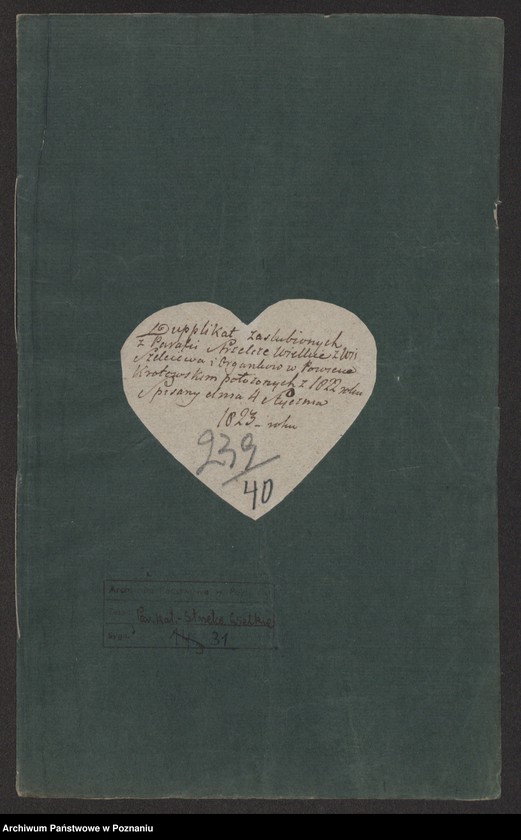 Dupplikat zaslubionych
z Parafii Strzelce Wielkie z Wsi
Szelejewa i Organkow w Powiecie
Krotoszskim położonych z 1822 roku
Spisany dnia 4 Stycznia
1823 roku
239
40
Par. kat. Strzelce Wielkie
31
Archiwum Państwowe w Poznaniu